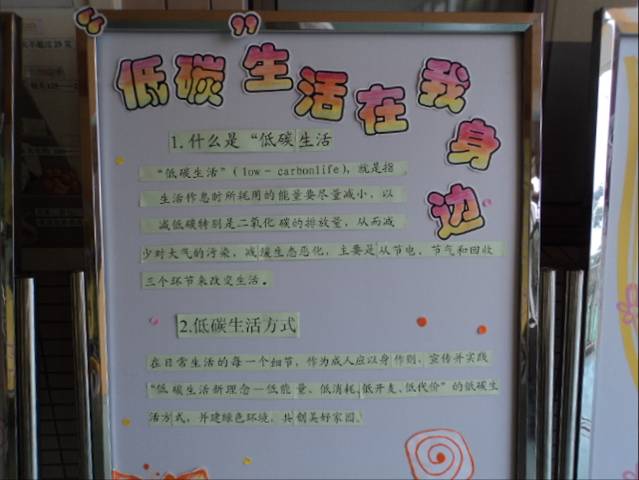 “低碳生活在我身边”
1.什么是“低碳生活
“低碳生活”(low-carbonlife),就是指
生活作息时所耗用的能量要尽量减小,以
减低碳特别是二氧化碳的排放量,从而减
少对大气的污染,减缓生态恶化,主要是从节电、节气和回收
三个环节来改变生活。
2.低碳生活方式
在日常生活的每一个细节,作为成人应以身作则、宣传并实践
“低碳生活新理念—低能量、低消耗,低开支、低代价”的低碳生
活方式,并建绿色环境,共创美好家园。